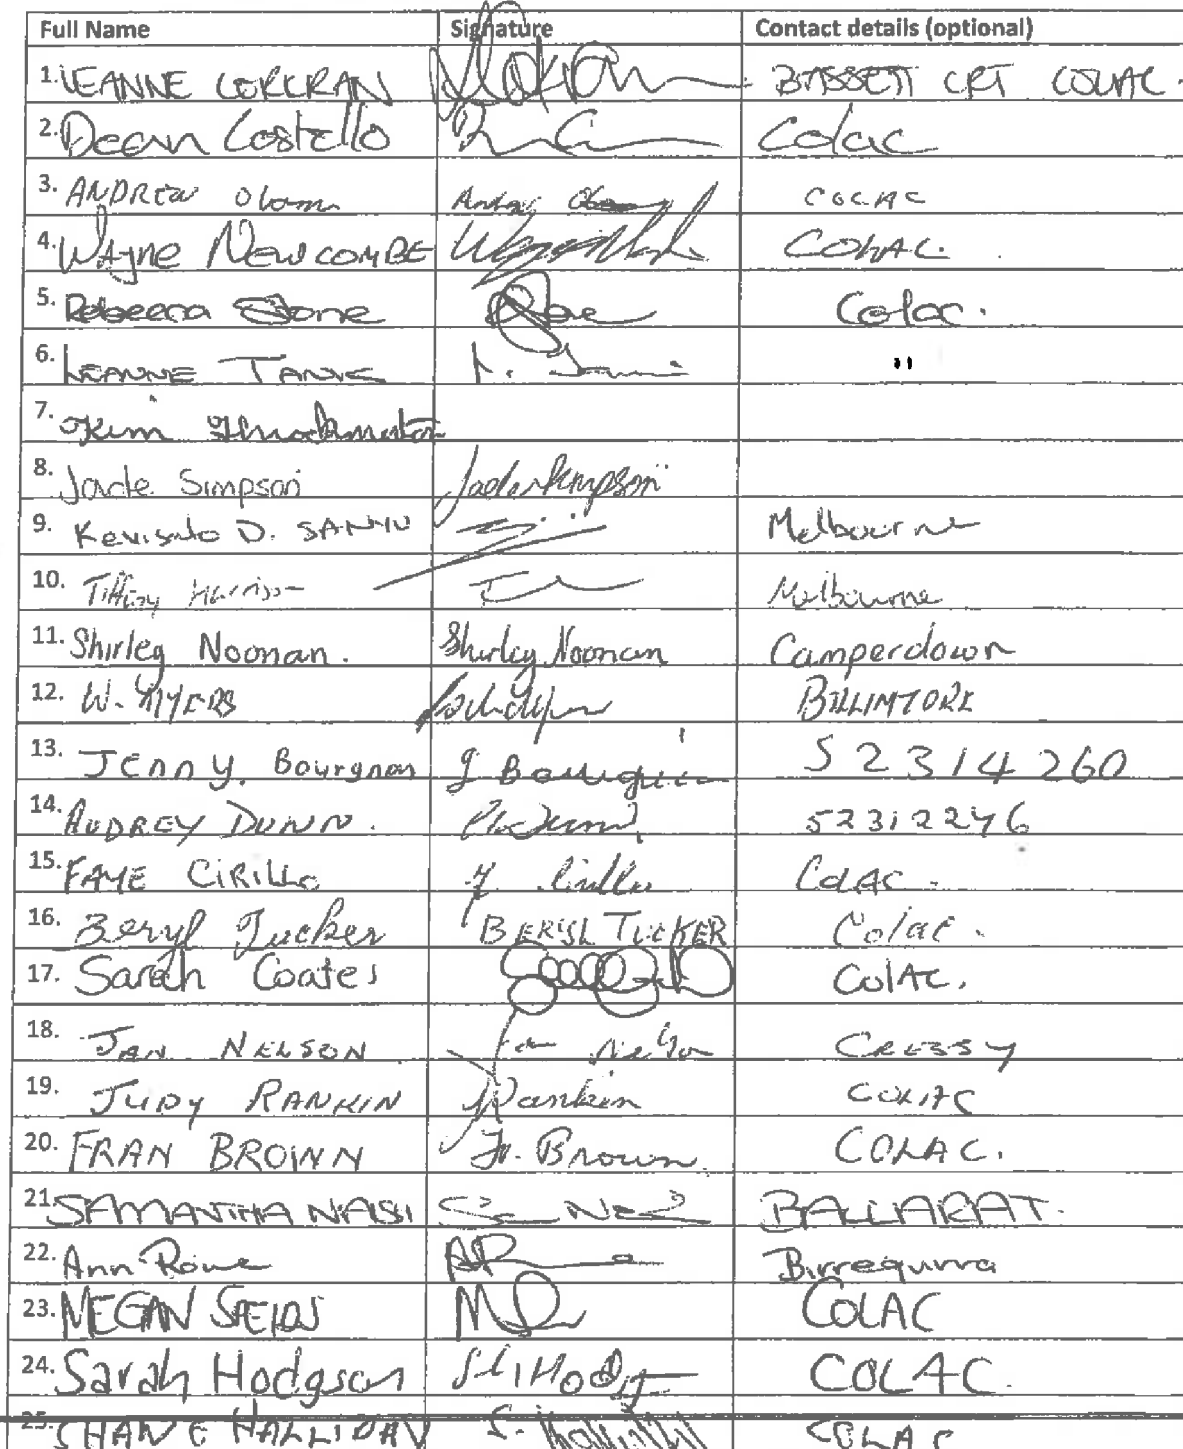 Full Name Signature Contact details (optional)
1. LEANNE CORCRAN BASSETT CRT COLAC.
2. Dean Costello Colac
3. ANDREW COLAC
4. Wayne NEWCOMBE COLAC.
5. Rebecca Stone Colac.
6. LEANNE "
7. Kim
8. Jade Simpson Jade Simpson
9. D. SANYU Melbourne
10. Tiffany Harrison Melbourne
11. Shirley Noonan. Shirley Noonan Camperdown
12. W. MYERS
13. JENNY. Bourgnon J Bourgnon 52314260
14. AUDREY DUNN. 52312246
15. FAYE CIRILLO F Cirillo COLAC.
16. Beryl Tucker BERYL TUCKER Colac.
17. Sarah Coates COLAC.
18. JAN NELSON Jan Nelson CRESSY
19. JUDY RANKIN J Rankin COLAC
20. FRAN BROWN Fr. Brown. COLAC.
21. SAMANTHA NASI BALLARAT.
22. Ann Rowe Birregurra
23. MEGAN COLAC
24. Sarah Hodgson COLAC.
25. SHANE HALLIDAY COLAC